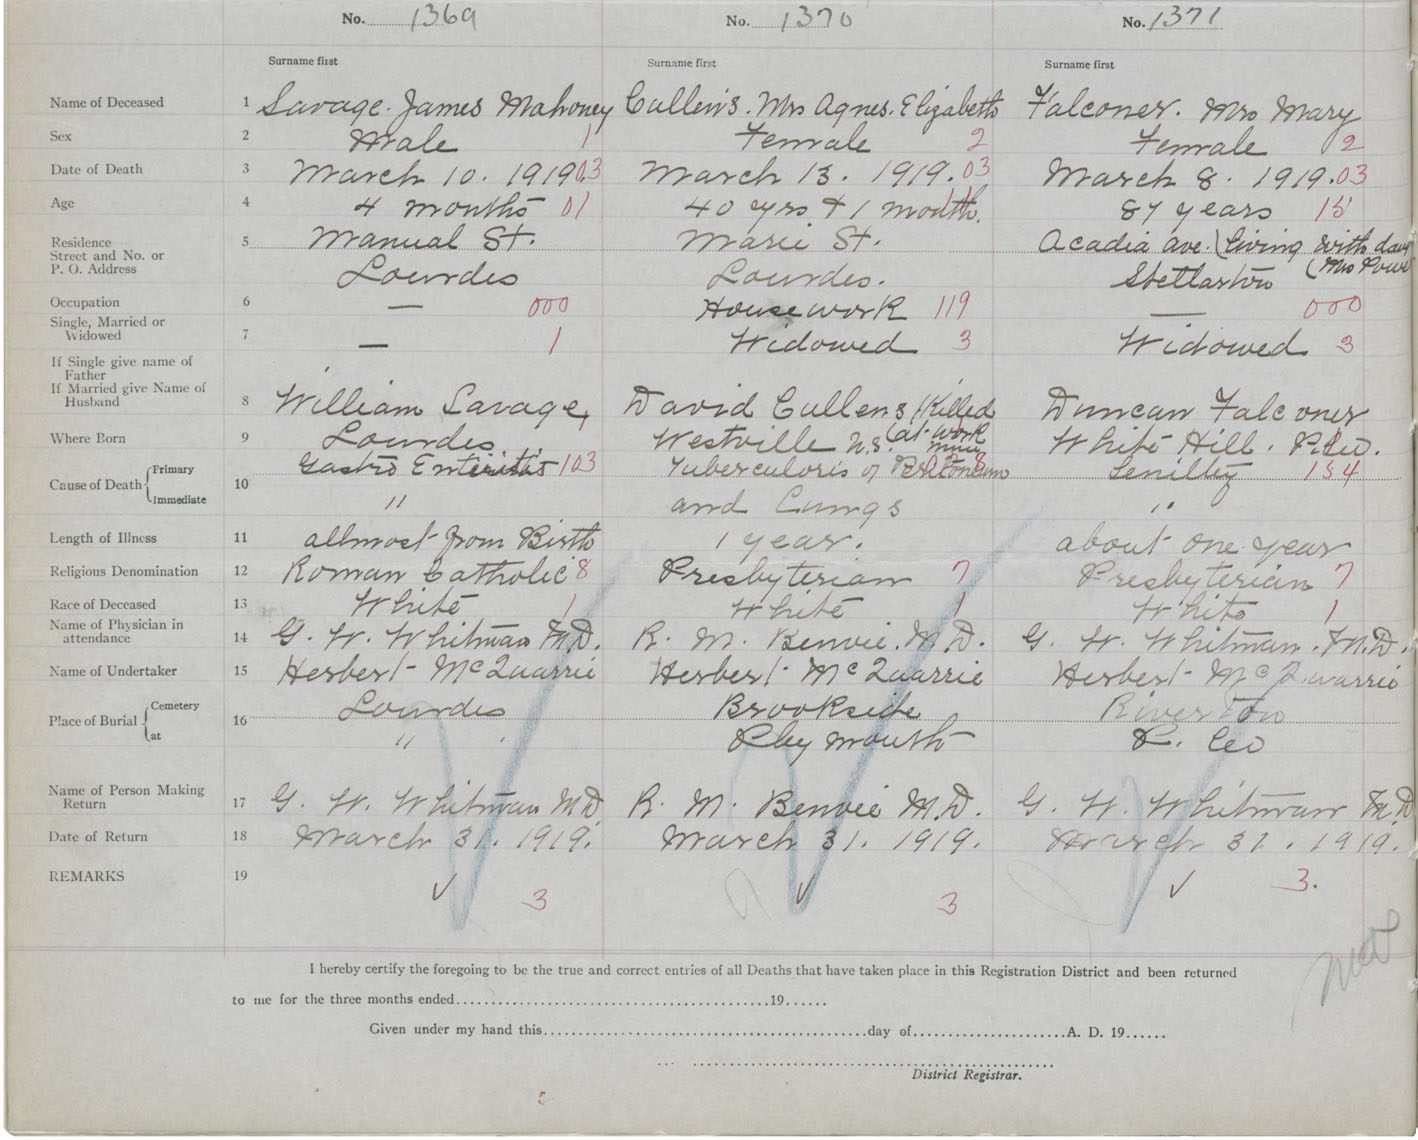 No. 1369 No. 1370 No. 1371
Surname first Surname first Surname first
Name of Deceased 1 Savage. James Mahoney Cullens. Mrs Agnes. Elizabeth Falconer. Mrs Mary
Sex 2 Male 1 Female 2 Female 2
Date of Death 3 March 10. 1919 03 March 13. 1919. 03 March 8. 1919. 03
Age 4 4 months 01 40 yrs + 1 month. 11 87 years 15
Residence 5 Manual St. Marie St. Acadia Ave. (living with
Street and No. or
P. O. Address Lourdes Lourdes. Stellarton (Mrs
Occupation 6 — 000 Housework 119 — 000
Single, Married or
Widowed 7 — 1 Widowed 3 Widowed 3
If Single give name of
Father
If Married give Name of
Husband 8 William Savage, David Cullens (Killed Duncan Falconer
Where Born 9 Lourdes Westville N.S. (at work White Hill. P. Co.
mine
Cause of Death Primary Gastro Enteritis 103 Tuberculosis of Peritoneum Senility 154
10
Immediate " and Lungs "
Length of Illness 11 allmost from Birth 1 year. about one year
Religious Denomination 12 Roman Catholic 8 Presbyterian 7 Presbyterian 7
Race of Deceased 13 White 1 White 1 White 1
Name of Physician in
attendance 14 G. W. Whitman M.D. R. M. Benvie. M.D. G. W. Whitman. M.D.
Name of Undertaker 15 Herbert McQuarrie Herbert McQuarrie Herbert McQuarrie
Place of Burial Cemetery 16 Lourdes Brookside Riverton
at " Plymouth P. Co
Name of Person Making
Return 17 G. W. Whitman M.D. R. M. Benvie M.D. G. W. Whitman M.D
Date of Return 18 March 31. 1919. March 31. 1919. March 31. 1919.
REMARKS 19 ✓ 3 ✓ 3 ✓ 3.
I hereby certify the foregoing to be the true and correct entries of all Deaths that have taken place in this Registration District and been returned
to me for the three months ended..........19......
Given under my hand this..........day of..........A. D. 19......
District Registrar.